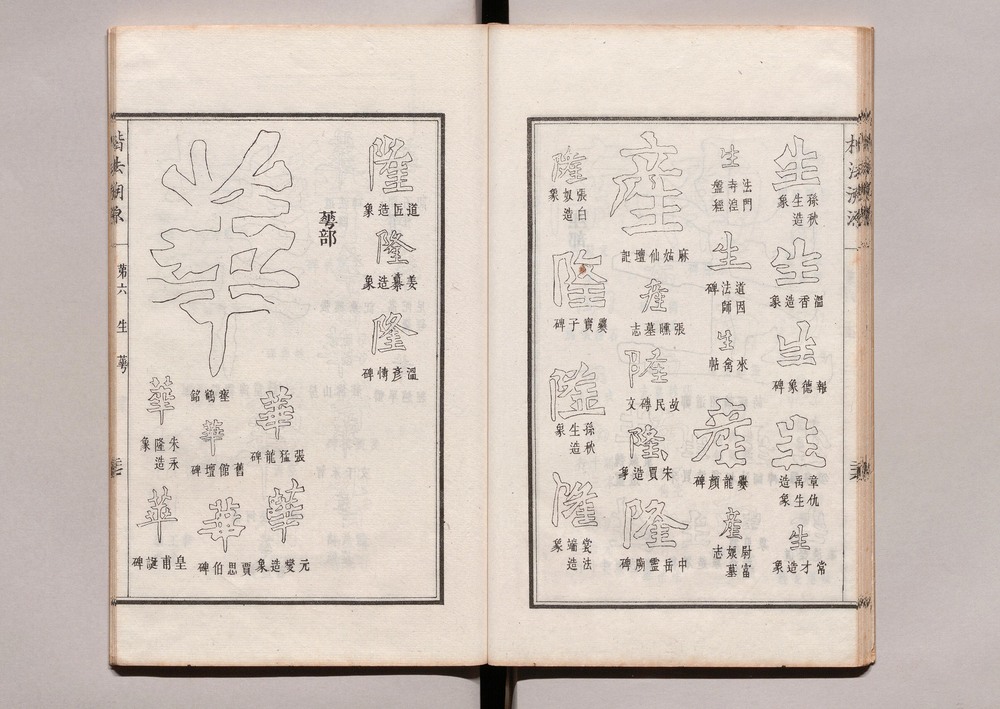 生
孫秋生造象
生
溫香造象
生
報德象碑
生
章仇禹生造象
生
常才造象
生
法門寺湼盤程
生
道因法師碑
生
來禽帖
產
爨龍顏碑
產
尉富娘墓志
產
麻姑仙壇記
產
張曛墓志
隆
故民磚文
隆
朱賈造象
隆
中岳靈廟碑
隆
張白奴造象
隆
爨寶子碑
隆
孫秋生造象
隆
法端造象
楷法溯源
第六
生
華
隆
道匠造象
隆
姜纂造象
隆
溫彥博碑
華部
華
華
張猛龍碑
華
元燮造象
塞鶴銘
華
舊館壇碑
華
賈思伯碑
華
朱永隆造象
華
皇甫誕碑